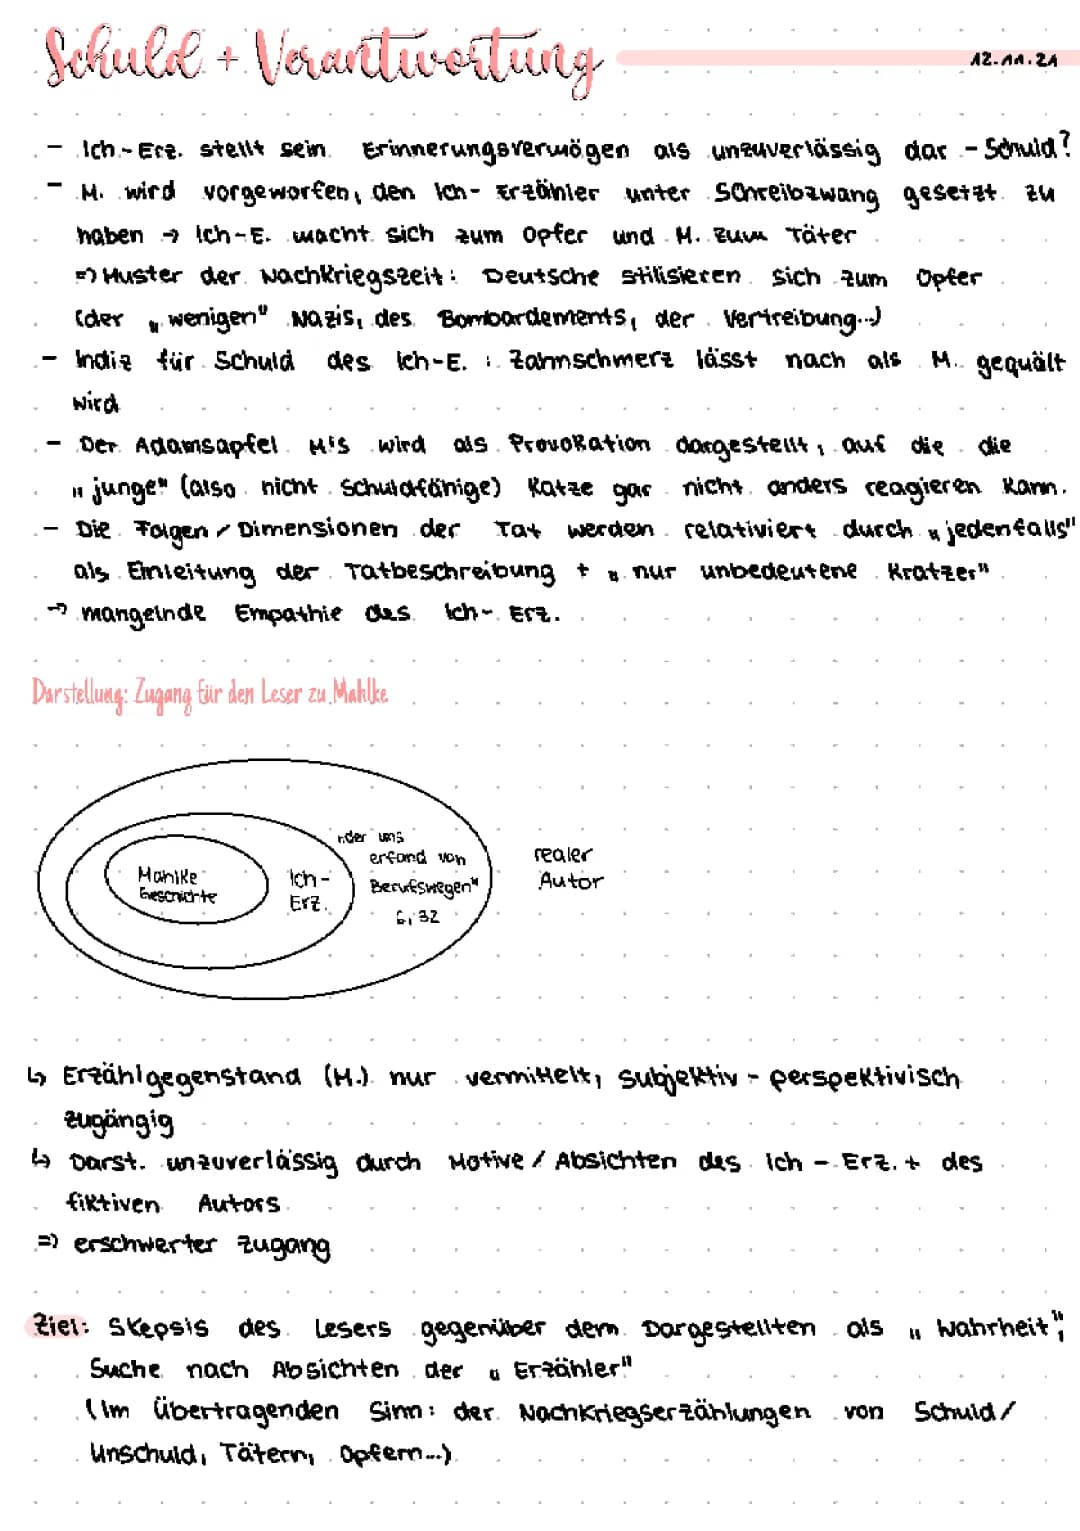 Schuld + Verantwortung
12.11.21
- Ich-Erz. stellt sein Erinnerungsvermögen als unzuverlässig dar - Schuld?
- M. wird vorgeworfen, den Ich-Erzähler unter Schreibzwang gesetzt zu
haben → Ich-E. macht sich zum Opfer und M. zum Täter
=> Muster der Nachkriegszeit: Deutsche stilisieren sich zum Opfer
(der „wenigen" Nazis, des Bombardements, der Vertreibung...)
- Indiz für Schuld des Ich-E.: Zahnschmerz lässt nach als M. gequält
wird
- Der Adamsapfel M's wird als Provokation dargestellt, auf die die
„junge" (also nicht schuldfähige) Katze gar nicht anders reagieren kann.
- Die Folgen / Dimensionen der Tat werden relativiert durch „jedenfalls"
als Einleitung der Tatbeschreibung + „nur unbedeutene Kratzer"
→ mangelnde Empathie des Ich-Erz.
Darstellung: Zugang für den Leser zu Mahlke
Mahlke
Geschichte
Ich-
Erz.
„der uns
erfand von
Berufswegen"
S. 32
realer
Autor
↳ Erzählgegenstand (M.) nur vermittelt, subjektiv - perspektivisch
zugängig
↳ Darst. unzuverlässig durch Motive / Absichten des Ich-Erz. + des
fiktiven Autors
=> erschwerter Zugang
Ziel: Skepsis des Lesers gegenüber dem Dargestellten als „Wahrheit";
Suche nach Absichten der „Erzähler"
(Im übertragenden Sinn: der Nachkriegserzählungen von Schuld/
Unschuld, Tätern, Opfern...)